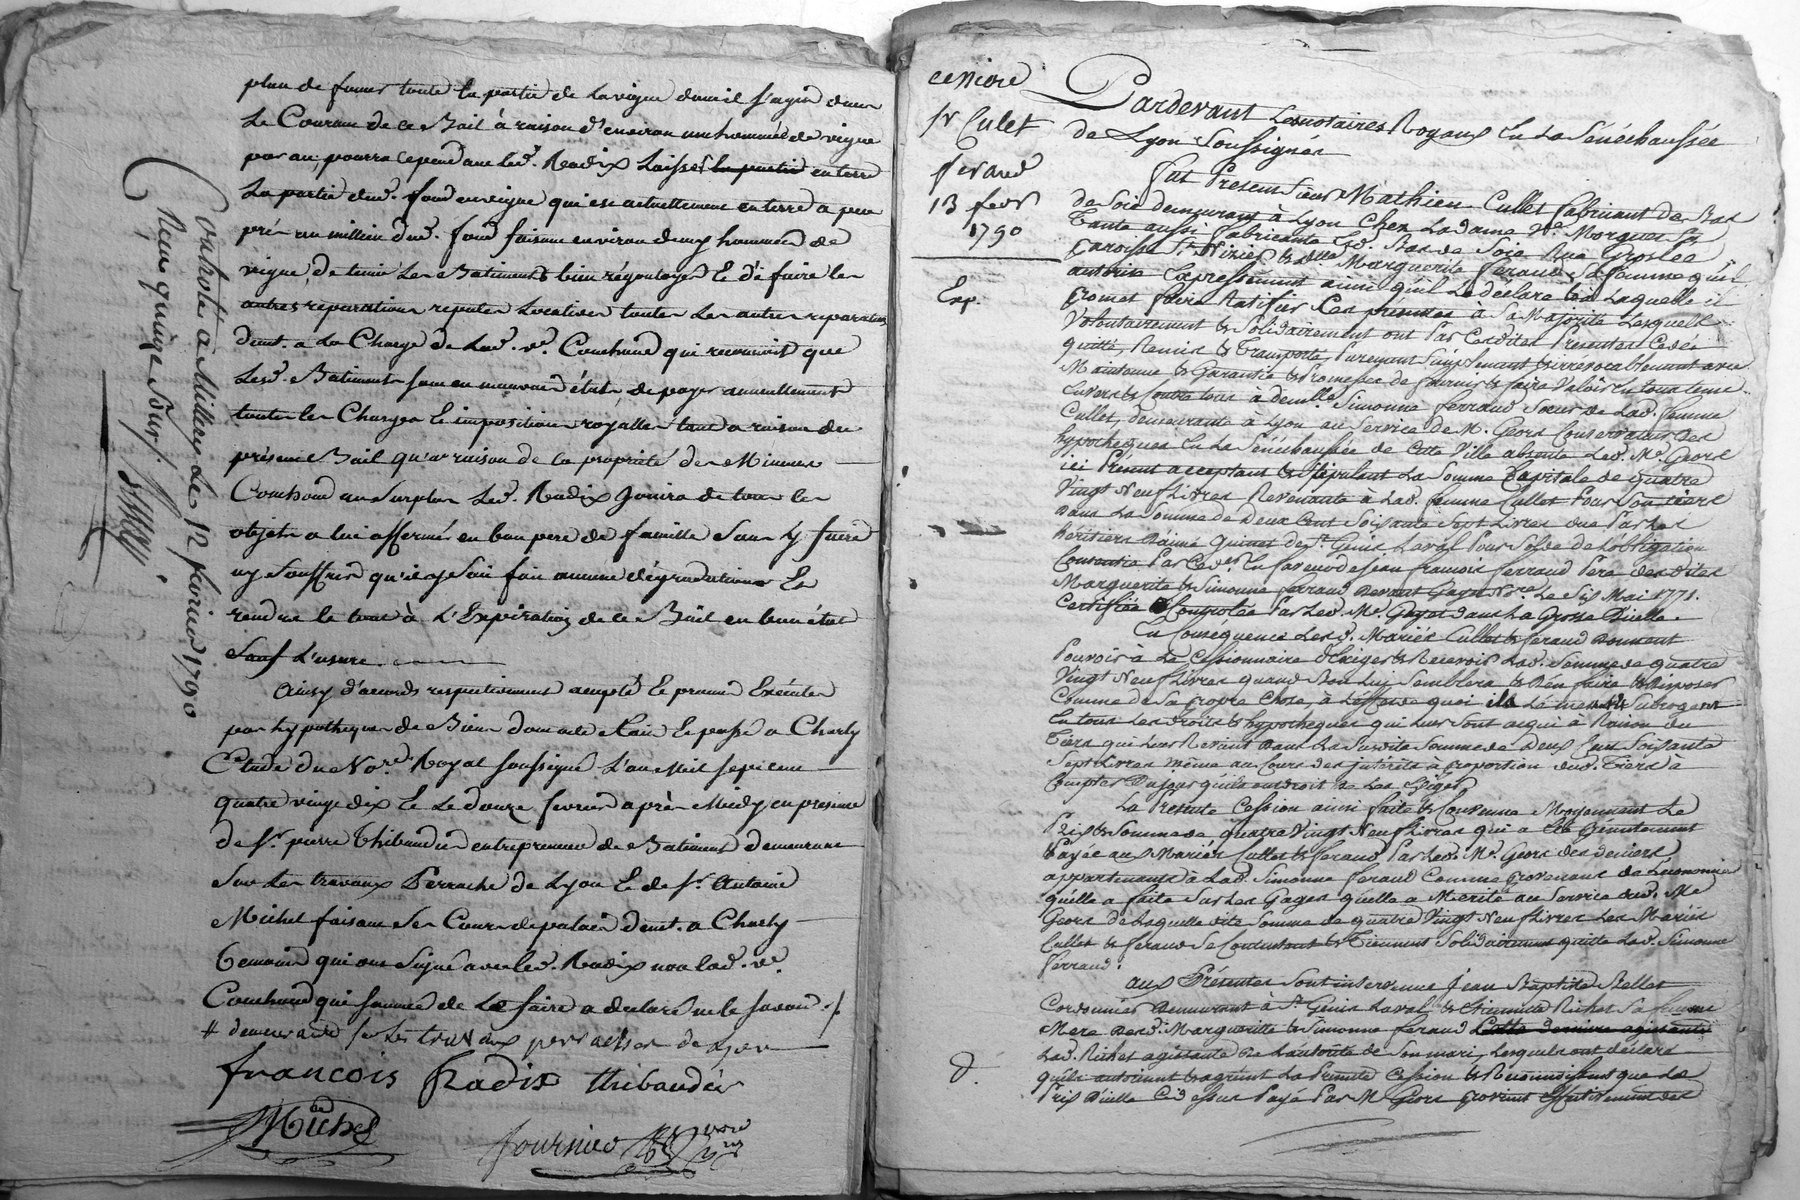 plan de fumer toute la partie de la vigne dont il s'agit dans
Le Courant de ce Bail à raison d'environ une hommée de vigne
par an, pourra cependant led. Radix Laisser la partie en terre
La partie dud. fond en vigne qui est actuellement en terre a peu
près au millieu dud. fond faisant environ deux hommées de
vigne, de tenir Les Batiments bien régoutoyés Et d'é faire les
autres reparations reputées Locatives toutes Les autres reparations
dmt. a La Charge de Lad. ve. Couchoud qui reconnoit que
Lesd. Batiments sont en mauvais état, de payer annuellement
toutes les Charges Et impositions royalles tant a raison du
présent Bail qu'a raison de la propriété des Mineurs
Couchoud au surplus Led. Radix Jouira de tous les
objets a lui affermés en bon pere de famille Sans y faire
ny Souffrir qu'il y Soit fait aucune dégradations Et
rendra le tout à L'Expiration de ce Bail en bon état
Sauf L'usure.
Ainsy d'accords respectivement accepté Et promis Exécuter
par hypotheques de Biens dont acte Fait Et passé a Charly
Etude du Nore. Royal soussigné L'an Mil sept cent
quatre vingt dix Et Le douze fevrier après Midy en presence
de Sr. pierre Thibaudier entrepreneur de Batiments demeurant
Sur Les travaux Perrache de Lyon Et de Sr. Antoine
Michel faisant Ses Cours de palais demt. a Charly
temoins qui ont Signé avec led. Radix non lad. ve.
Couchoud qui sommée de Le faire a declaré ne le savoir ./.
# demeurant sur les travaux perrache de Lyon
francois Radix thibaudier
Michel
fournier
Controllé à Millery Le 12 fevrier 1790
Reçu quinze Sous ./.
cession
sr Culet
ferand
13 fevr
1790
Exp.
Pardevant Les notaires Royaux En La Sénéchaussée
de Lyon Soussignés
Fut Present Sieur Mathieu Cullet fabriquant de Bas
de Soie demeurant à Lyon Chez La dame Ve. Morguet Sa
Tante aussi fabricante de Bas de Soie Rue Grolée
Paroisse St. Nizier & dlle Marguerite feraud Sa femme qu'il
autorise Expressement ainsi qu'il Le déclare & à Laquelle il
Promet faire Ratifier Ces présentes à Sa Majorité Lesquels
Volontairement & Solidairement ont Par Cesdites Présentes Cédé
quitté, Remis & Transporté, Purement Simplement & irrévocablement avec
Maintenue & Garantie & Promesse de fournir & faire Valoir En tout tems
Envers & Contre tous à demlle. Simonne ferraud Soeur de Lad. femme
Cullet, demeurante à Lyon au Service de M. Geors Conservateur des
hypotheques En La Sénéchaussée de Cette Ville absente Led. Me. Geors
ici Présent acceptant & Stipulant La Somme Capitale de quatre
Vingt Neuf Livres Revenante à Lad. femme Cullet Pour Son tiers
Dans La Somme de Deux Cent Soixante Sept Livres due Par Les
héritiers Rainé Guinet de St. Genis Laval Pour Solde de Lobligation
Consentie Par Ced. En faveur de Jean francois ferraud Pere des dites
Marguerite & Simonne ferraud Devant Gayot Nore. Le Six Mai 1771.
Certifiée Controlée Par Led. Me. Gayot dans La Grosse Dicelle.
En Conséquence Lesd. Mariés Cullet & feraud Donnent
Pouvoir à La Cessionnaire d'Exiger & Recevoir Lad. Somme de quatre
Vingt Neuf Livres quand Bon Luy Semblera & d'En faire & Disposer
Comme de Sa propre Chose, à Leffet de quoi ils La mettent & Subrogent
En tous Les droits & hypotheques qui Leur Sont acqui à Raison du
Tiers qui Leur Revient Dans La Susdite Somme de Deux Cent Soixante
Sept Livres même au Cours des intérêts à Proportion dud. Tiers à
Compter Du jour qu'ils ont droit de Les Exiger
La Présente Cession ainsi faite & Convenue Moyennant Le
Prix & Somme de quatre Vingt Neuf Livres qui a Eté Présentement
Payée aux Mariés Cullet & feraud Par Led. Me. Geors des deniers
appartenants à Lad. Simonne feraud Comme Provenant de Léconomie
qu'elle a faite Sur Les Gages quelle a Merité au Service dud. Me.
Geors de Laquelle dite Somme de quatre Vingt Neuf Livres Les Mariés
Cullet & feraud Se Contentent & Tiennent Solidairement quitte Lad. Simonne
ferraud.
aux Présentes Sont intervenus Jean Baptiste Rellet
Cordonnier Demeurant à St. Genis Laval & Etiennette Richet Sa femme
Mere Desd. Marguerite & Simonne feraud Cette derniere agissante
Lad. Richet agissante de Lautorité de Son mari, Lesquels ont déclaré
qu'ils autorisent & agréent La Présente Cession & Reconnoissent que Le
Prix D'icelle Cy dessus Payé Par M Geors Provient Effectivement des